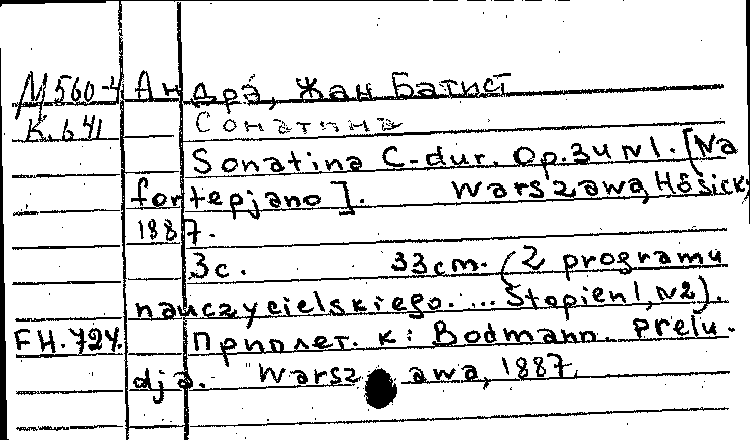 М560-4 Андрэ, Жан Батист
К.641 Сонатина
Sonatina C-dur. Op.34 N1. [Na
fortepjano]. Warszawa, Hösick,
1887.
3c. 33cm. (Z programu
nauczycielskiego. ... Stopien I, N2).
FH.724. Приплет. к: Bodmann. Prelu-
dja. Warszawa, 1887.